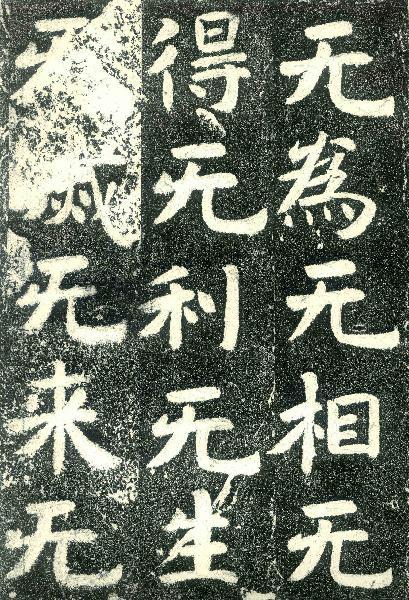 无為无相无
得无利无生
无滅无来无